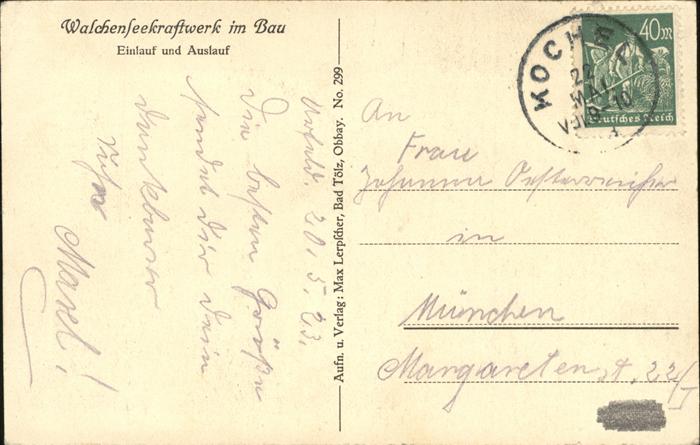 Walchenseekraftwerk im Bau
Einlauf und Auslauf
Urfeld. 20.5.23.
Die besten Grüße
sendet Dir Dein
dankbarer
Marel!
Aufn. u. Verlag: Max Lerpscher, Bad Tölz, Obbay. No. 299
KOCHEL
22 MAI
V. 9-10
40 M
Deutsches Reich
An
Frau
Johanna Oesterreicher
in
München
Margareten st. 22/I